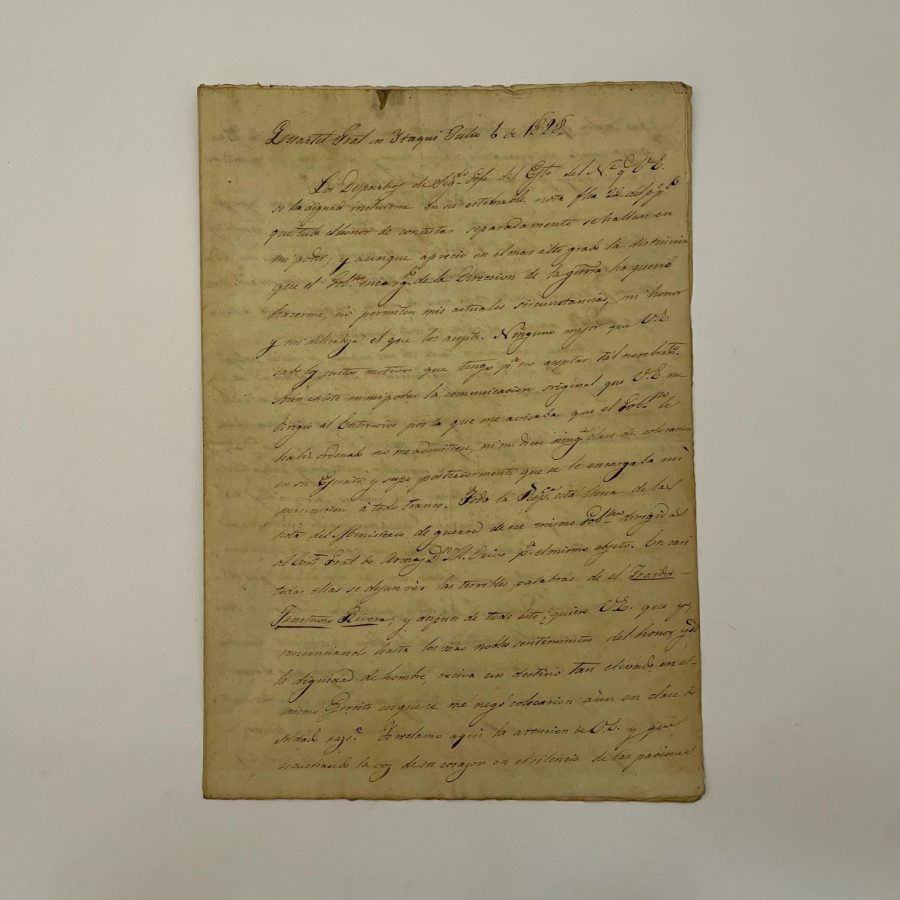 Quartel Gral n Ytaqui Julio 6 de 1828
Los Despachos de Seg.do Gefe del Exto del N.te q.e V.E.
se ha dignado incluirme en su estimable nota fha 22 del pp.do
que tuve el honor de contestar separadamente se hallan en
mi poder, y aunque aprecio en el mas alto grado la distincion
que el Gob.no encarg.do de la Direccion de la guerra ha querido
hacerme, ni permiten mis actuales circunstancias, mi honor
y mi delicadeza el que los acepte. Ninguno mejor que V.E.
sabe los justos motivos que tengo p.a no aceptar tal nombram.to
Aun existe en mi poder la comunicacion original que V.E. me
dirigio al por la que me avisaba que el Gob.no le
habia ordenado no me admitiese, ni me diese ning.a clase de colocacion
en su Egercito y supe posteriormente que se le encargaba mi
persecucion á todo trance. Toda la Rep.ca está llena de las
nota del Ministerio de guerra de ese mismo Gob.no dirigida
al Com.te Gral de Armas D.n M. Oribe p.a el mismo objeto. En casi
todas ellas se dejan vér las terribles palabras de el Traidor
Fructuoso Rivera; y despues de todo esto ¿quiere V.E. que yo
renunciando hasta los mas nobles sentimientos del honor, y de
la dignidad de hombre, reciva un destino tan elevado en el
mismo Egercito en que se me negó colocacion aùn en clase de
soldado razo? Yo reclamo aqui la atencion de V.E. y que
escuchando la voz de su corazon en el silencio de las pasiones